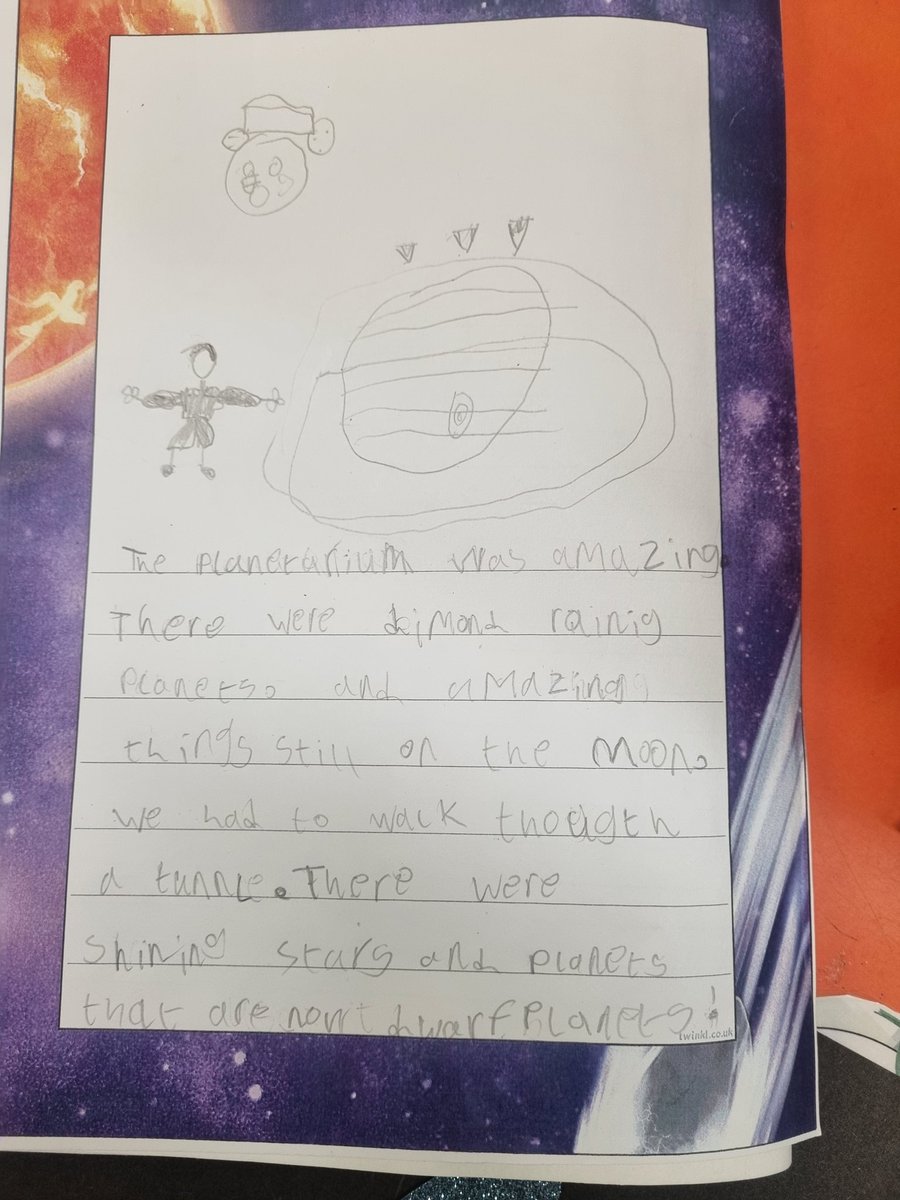 The planetarium was amazing.
There were dijmond rainig
planets. and amazing
things still on the moon.
we had to walk thougth
a tunnle. There were
shining stars and planets
that are now dwarf planets!
twinkl.co.uk